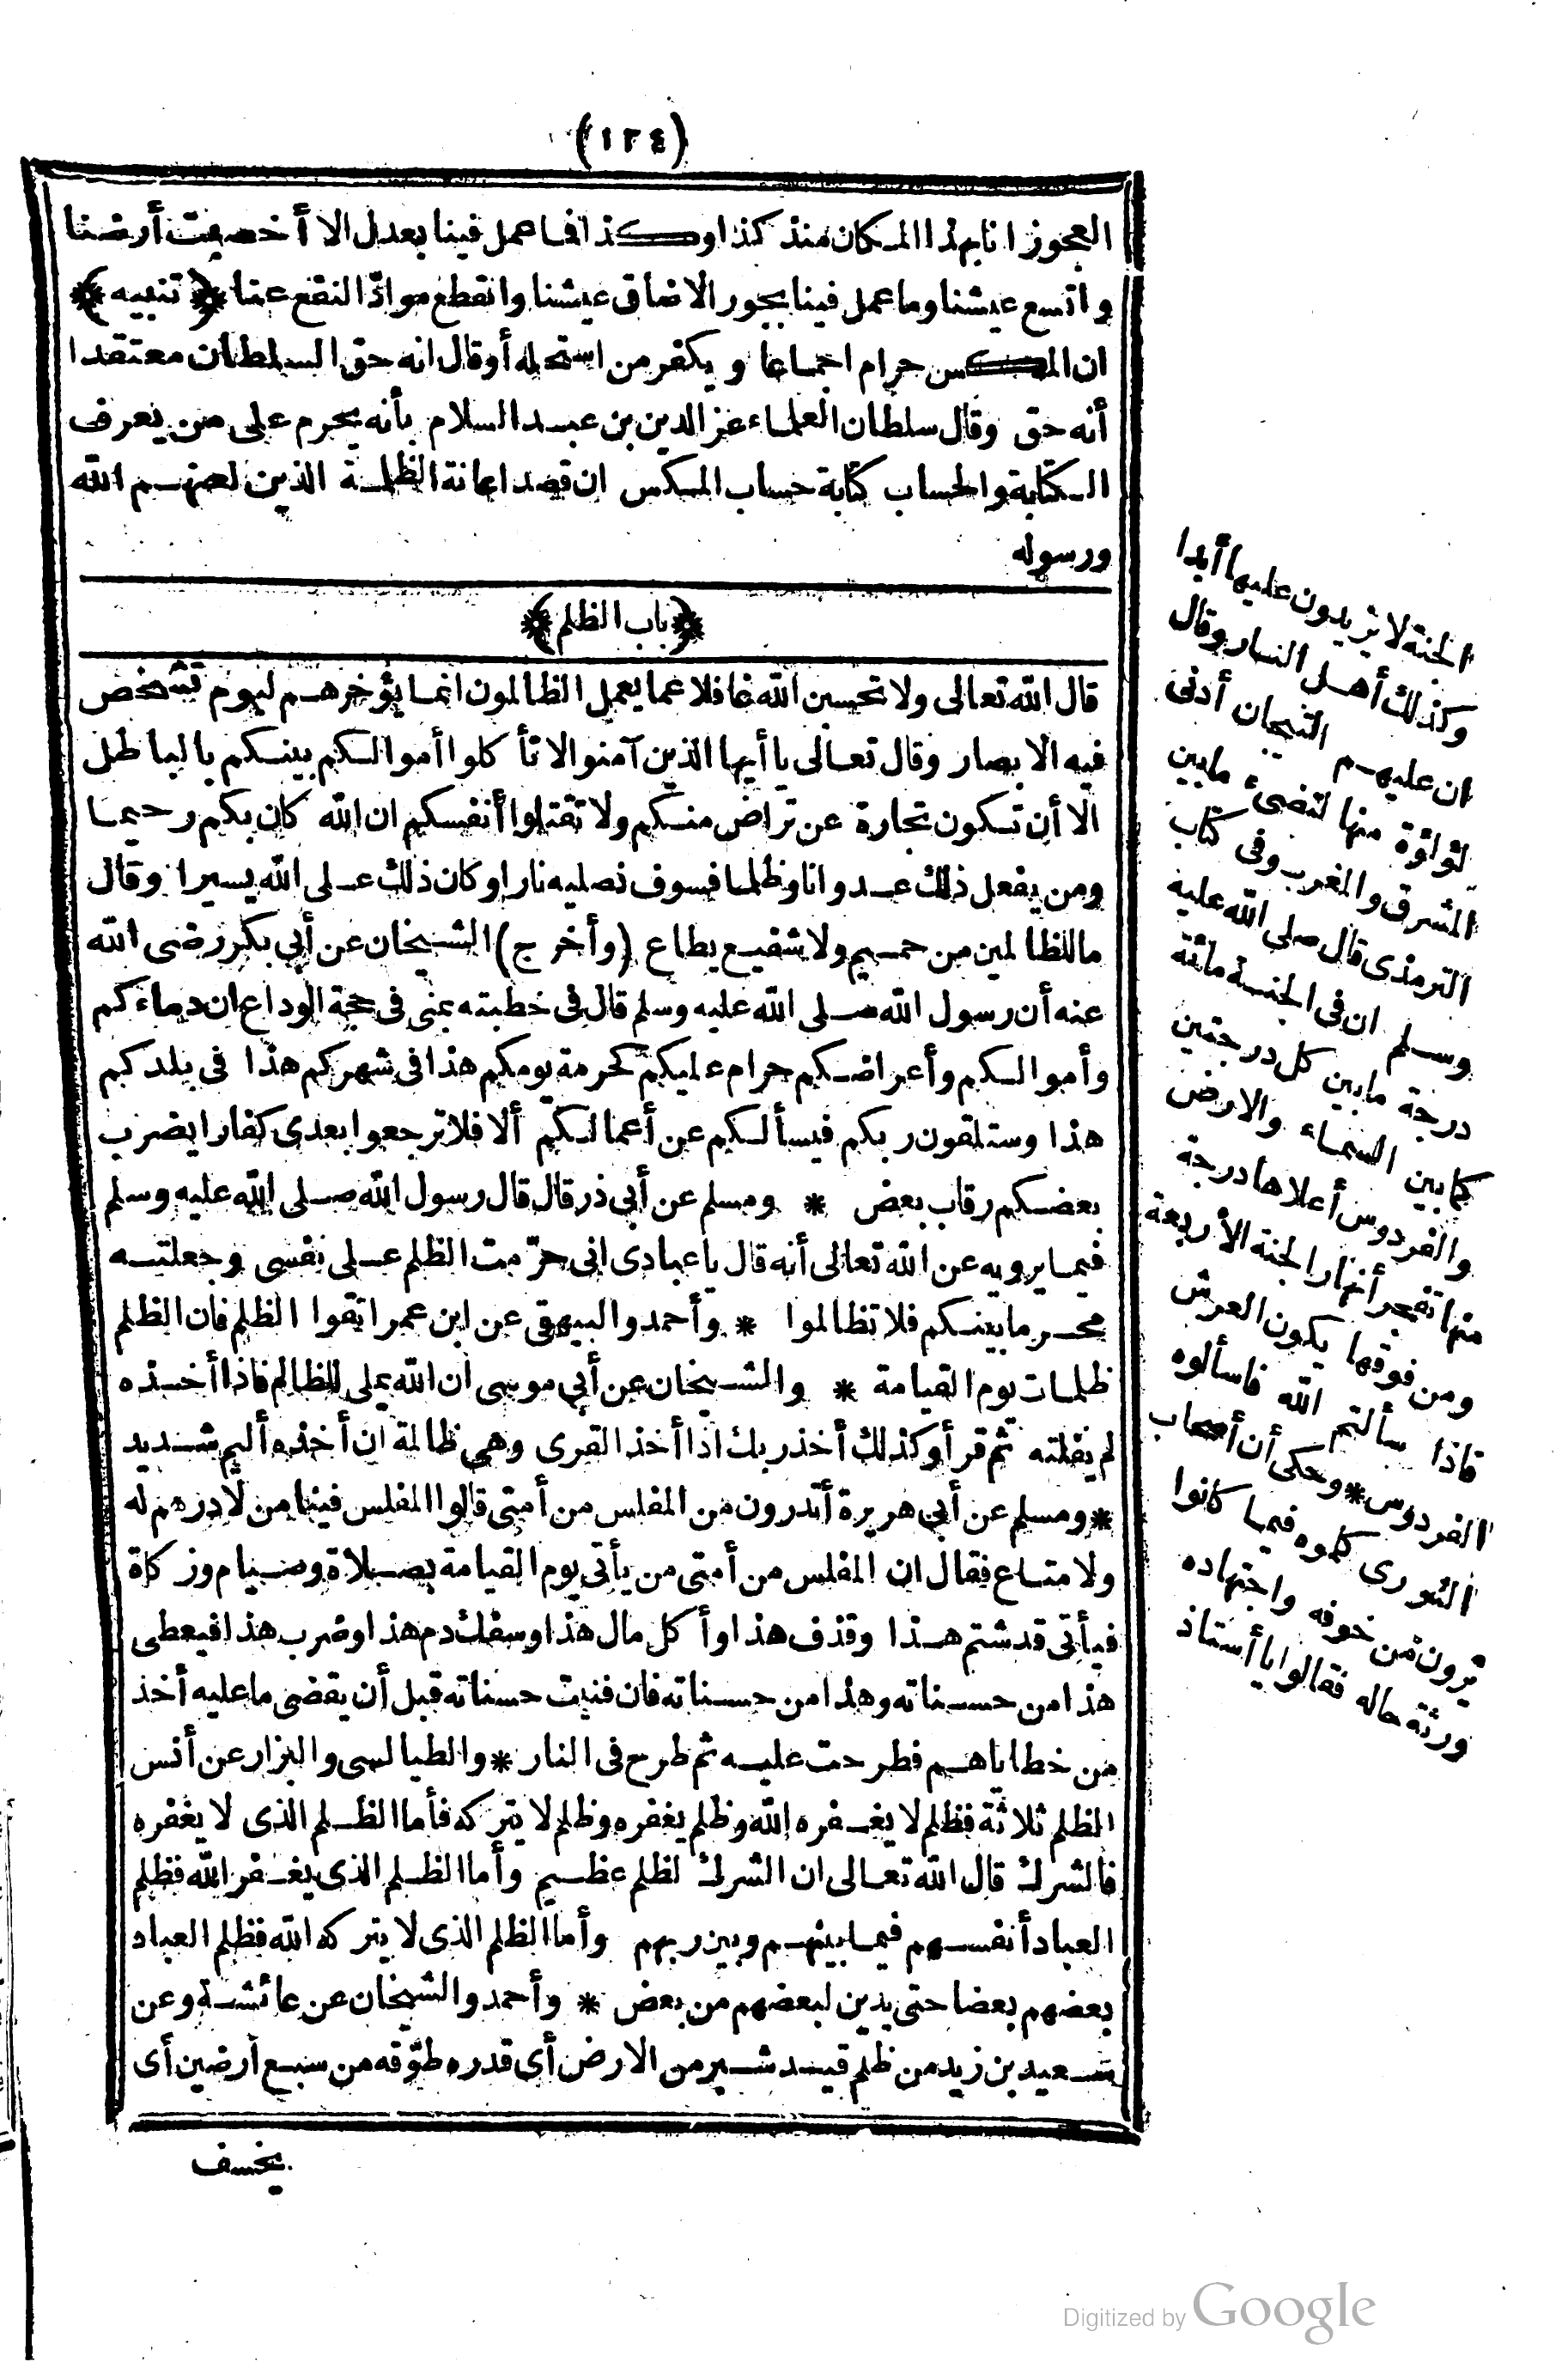 (١٢٤)
العجوز انا بهذا المكان منذ كذا وكذا فما عمل فينا بعدل الا أخصبت أرضنا
واتسع عيشنا وما عمل فينا بجور الا ضاق عيشنا وانقطع مواد النفع عنا ﴿تنبيه﴾
ان المكس حرام اجماعا ويكفر من استحله أو قال انه حق السلطان معتقدا
أنه حق وقال سلطان العلماء عز الدين بن عبد السلام بأنه يحرم على من يعرف
الكتابة والحساب كتابة حساب المكس ان قصد اعانة الظلمة الذين لعنهم الله
ورسوله
﴿باب الظلم﴾
قال الله تعالى ولا تحسبن الله غافلا عما يعمل الظالمون انما يؤخرهم ليوم تشخص
فيه الابصار وقال تعالى يا أيها الذين آمنوا لا تأكلوا أموالكم بينكم بالباطل
الا أن تكون تجارة عن تراض منكم ولا تقتلوا أنفسكم ان الله كان بكم رحيما
ومن يفعل ذلك عدوانا وظلما فسوف نصليه نارا وكان ذلك على الله يسيرا وقال
ما للظالمين من حميم ولا شفيع يطاع (وأخرج) الشيخان عن أبي بكر رضى الله
عنه أن رسول الله صلى الله عليه وسلم قال فى خطبته بمنى فى حجة الوداع ان دماءكم
وأموالكم وأعراضكم حرام عليكم كحرمة يومكم هذا فى شهركم هذا فى بلدكم
هذا وستلقون ربكم فيسألكم عن أعمالكم ألا فلا ترجعوا بعدى كفارا يضرب
بعضكم رقاب بعض * ومسلم عن أبى ذر قال قال رسول الله صلى الله عليه وسلم
فيما يرويه عن الله تعالى أنه قال يا عبادى انى حرّمت الظلم على نفسى وجعلته
محرما بينكم فلا تظالموا * وأحمد والبيهقى عن ابن عمر اتقوا الظلم فان الظلم
ظلمات يوم القيامة * والشيخان عن أبى موسى ان الله يملى للظالم فاذا أخذه
لم يفلته ثم قرأ وكذلك أخذ ربك اذا أخذ القرى وهى ظالمة ان أخذه أليم شديد
* ومسلم عن أبى هريرة أتدرون من المفلس من أمتى قالوا المفلس فينا من لا درهم له
ولا متاع فقال ان المفلس من أمتى من يأتى يوم القيامة بصلاة وصيام وزكاة
فيأتى قد شتم هذا وقذف هذا وأكل مال هذا وسفك دم هذا وضرب هذا فيعطى
هذا من حسناته وهذا من حسناته فان فنيت حسناته قبل أن يقضى ما عليه أخذ
من خطاياهم فطرحت عليه ثم طرح فى النار * والطيالسى والبزار عن أنس
الظلم ثلاثة فظلم لا يغفره الله وظلم يغفره وظلم لا يتركه فأما الظلم الذى لا يغفره
فالشرك قال الله تعالى ان الشرك لظلم عظيم وأما الظلم الذى يغفر الله فظلم
العباد أنفسهم فيما بينهم وبين ربهم وأما الظلم الذى لا يتركه الله فظلم العباد
بعضهم بعضا حتى يدين لبعضهم من بعض * وأحمد والشيخان عن عائشة وعن
سعيد بن زيد من ظلم قيد شبر من الارض أى قدره طوّقه من سبع أرضين أى
يخسف
الجنة لا يزيدون عليها أبدا
وكذلك أهل النار وقال
ان عليهم التيجان أدنى
لؤلؤة منها لتضىء ما بين
المشرق والمغرب وفى كتاب
الترمذى قال صلى الله عليه
وسلم ان فى الجنة مائة
درجة ما بين كل درجتين
كما بين السماء والارض
والفردوس أعلاها درجة
منها تفجر أنهار الجنة الأربعة
ومن فوقها يكون العرش
فاذا سألتم الله فاسألوه
الفردوس * وحكى أن أصحاب
الثورى كلموه فيما كانوا
يرون من خوفه واجتهاده
ورثة حاله فقالوا يا أستاذ